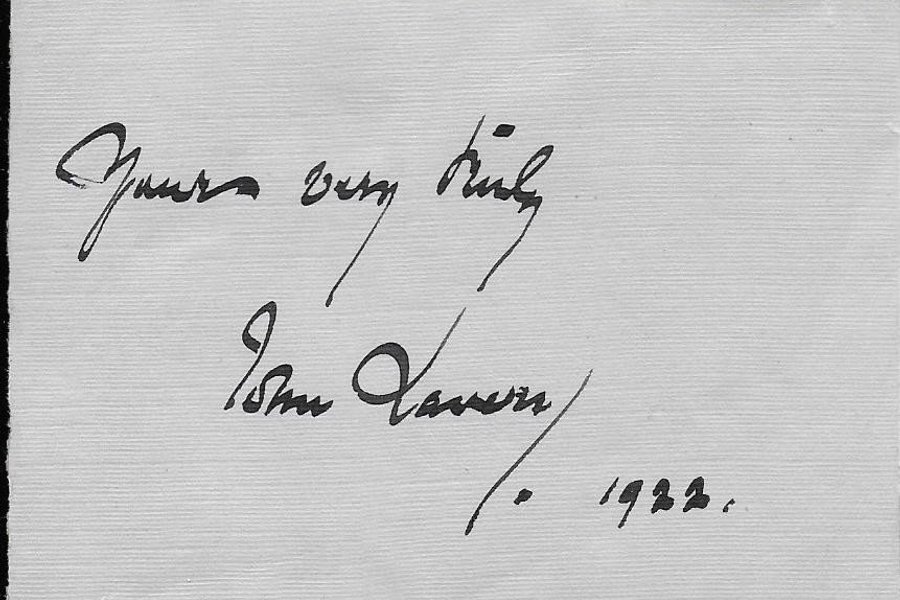 Yours very truly
John Lavery.
1922.